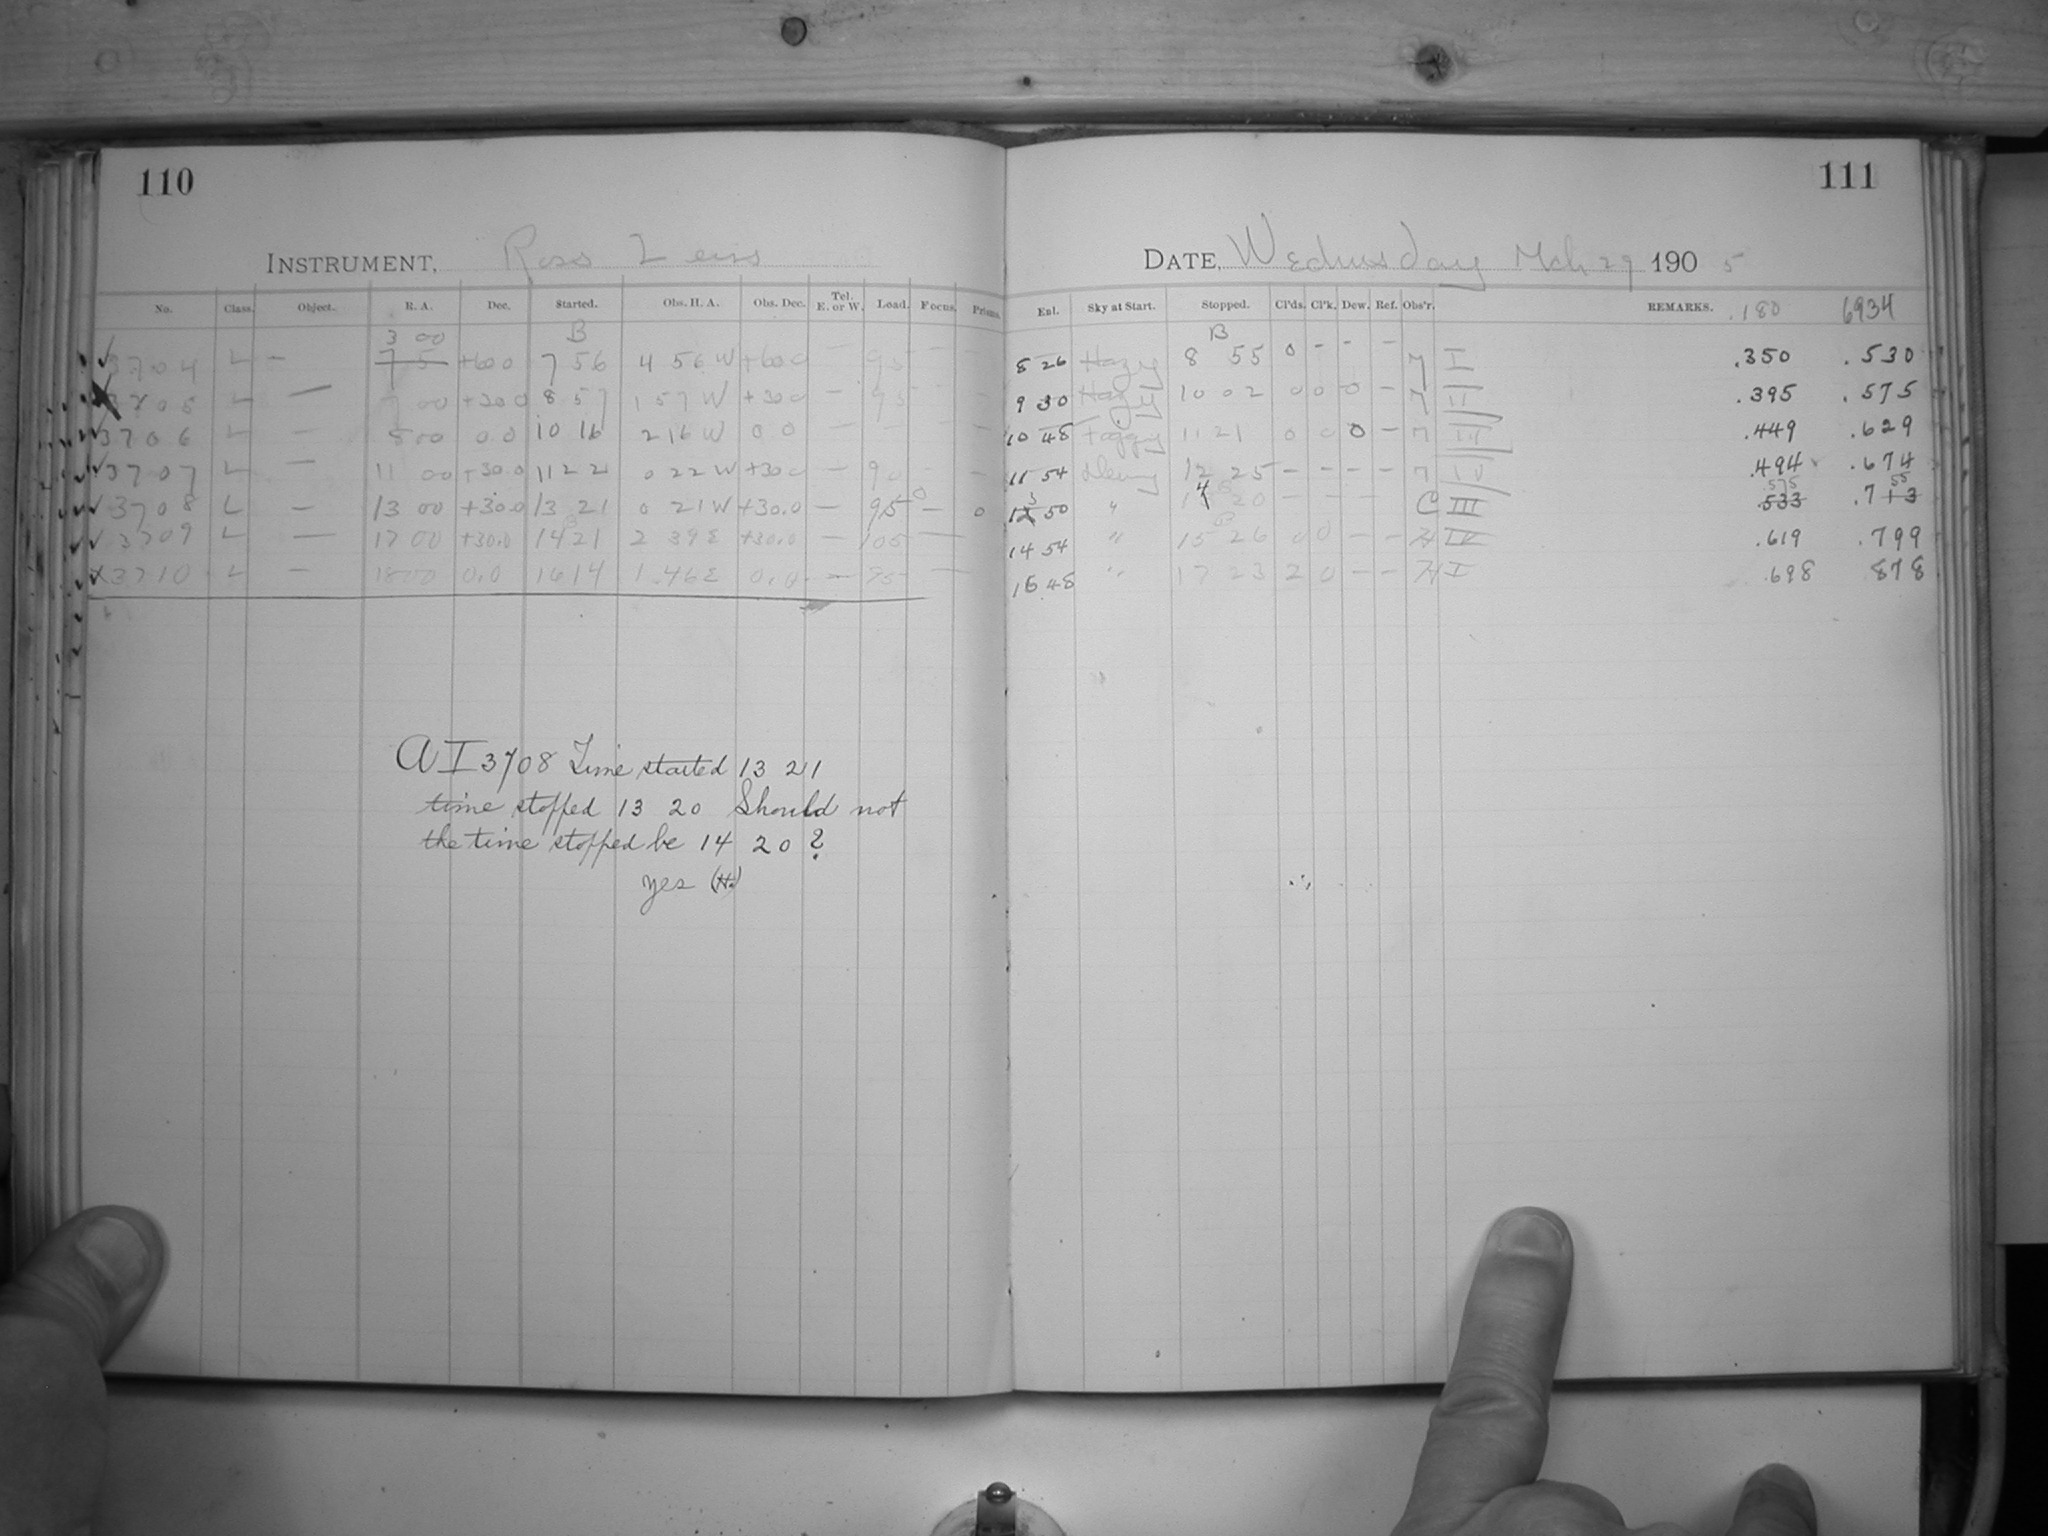 110
111
INSTRUMENT, Ross Lens
DATE, Wednesday Mch 29 1905
No. Class. Object. R. A. Dec. Started. Obs. H. A. Obs. Dec. Tel. E. or W. Load. Focus. Prisms.
Enl. Sky at Start. Stopped. Cl'ds. Cl'k. Dew. Ref. Obs'r. REMARKS. .180 6934
3 00 B
B
3704 L - 7 5 +60 0 7 56 4 56 W +60 0 - 95 -
8 26 Hazy 8 55 0 - - - I .350 .530
3705 L — 7 00 +30 0 8 57 1 57 W +30 0 - 95
9 30 Hazy 10 02 0 0 0 - II .395 .575
3706 L - 8 00 0.0 10 16 2 16 W 0 0 - - - -
10 48 Foggy 11 21 0 0 0 - III .449 .629
3707 L — 11 00 +30.0 11 22 0 22 W +30 0 — 90 - -
11 54 Dewy 12 25 - - - - IV .494 .674
3708 L — 13 00 +30.0 13 21 0 21 W +30.0 — 95 - 0
13 50 " 14 20 - - - - C III .533 .575 .713 55
3709 L — 17 00 +30.0 14 21 2 39 E +30.0 — 105 —
14 54 " 15 26 0 0 - - H IV .619 .799
3710 L — 18 00 0.0 16 14 1.46 E 0.0 — 95 —
16 48 " 17 23 2 0 - - H I .698 .878
A I 3708 Time started 13 21
time stopped 13 20 Should not
the time stopped be 14 20 ?
yes (H.)